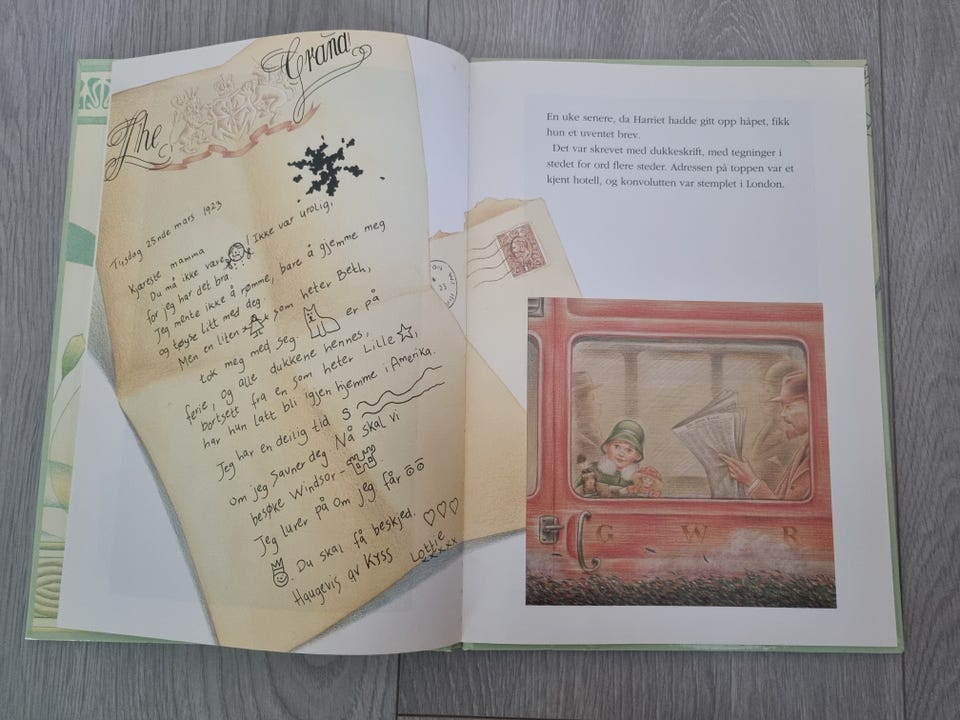 The Grand
Tirsdag 25nde mars 1923
Kjæreste mamma
Du må ikke være ! Ikke vær urolig,
for jeg har det bra.
Jeg mente ikke å rømme, bare å gjemme meg
og tøyse litt med deg.
Men en liten som heter Beth,
tok meg med seg. er på
ferie, og alle dukkene hennes,
bortsett fra en som heter Lille ,
har hun latt bli igjen hjemme i Amerika.
Jeg har en deilig tid S
om jeg savner deg. Nå skal vi
besøke Windsor- .
Jeg lurer på om jeg får
. Du skal få beskjed.
Haugevis av Kyss Lottie
xxxxx
En uke senere, da Harriet hadde gitt opp håpet, fikk
hun et uventet brev.
Det var skrevet med dukkeskrift, med tegninger i
stedet for ord flere steder. Adressen på toppen var et
kjent hotell, og konvolutten var stemplet i London.
G W R